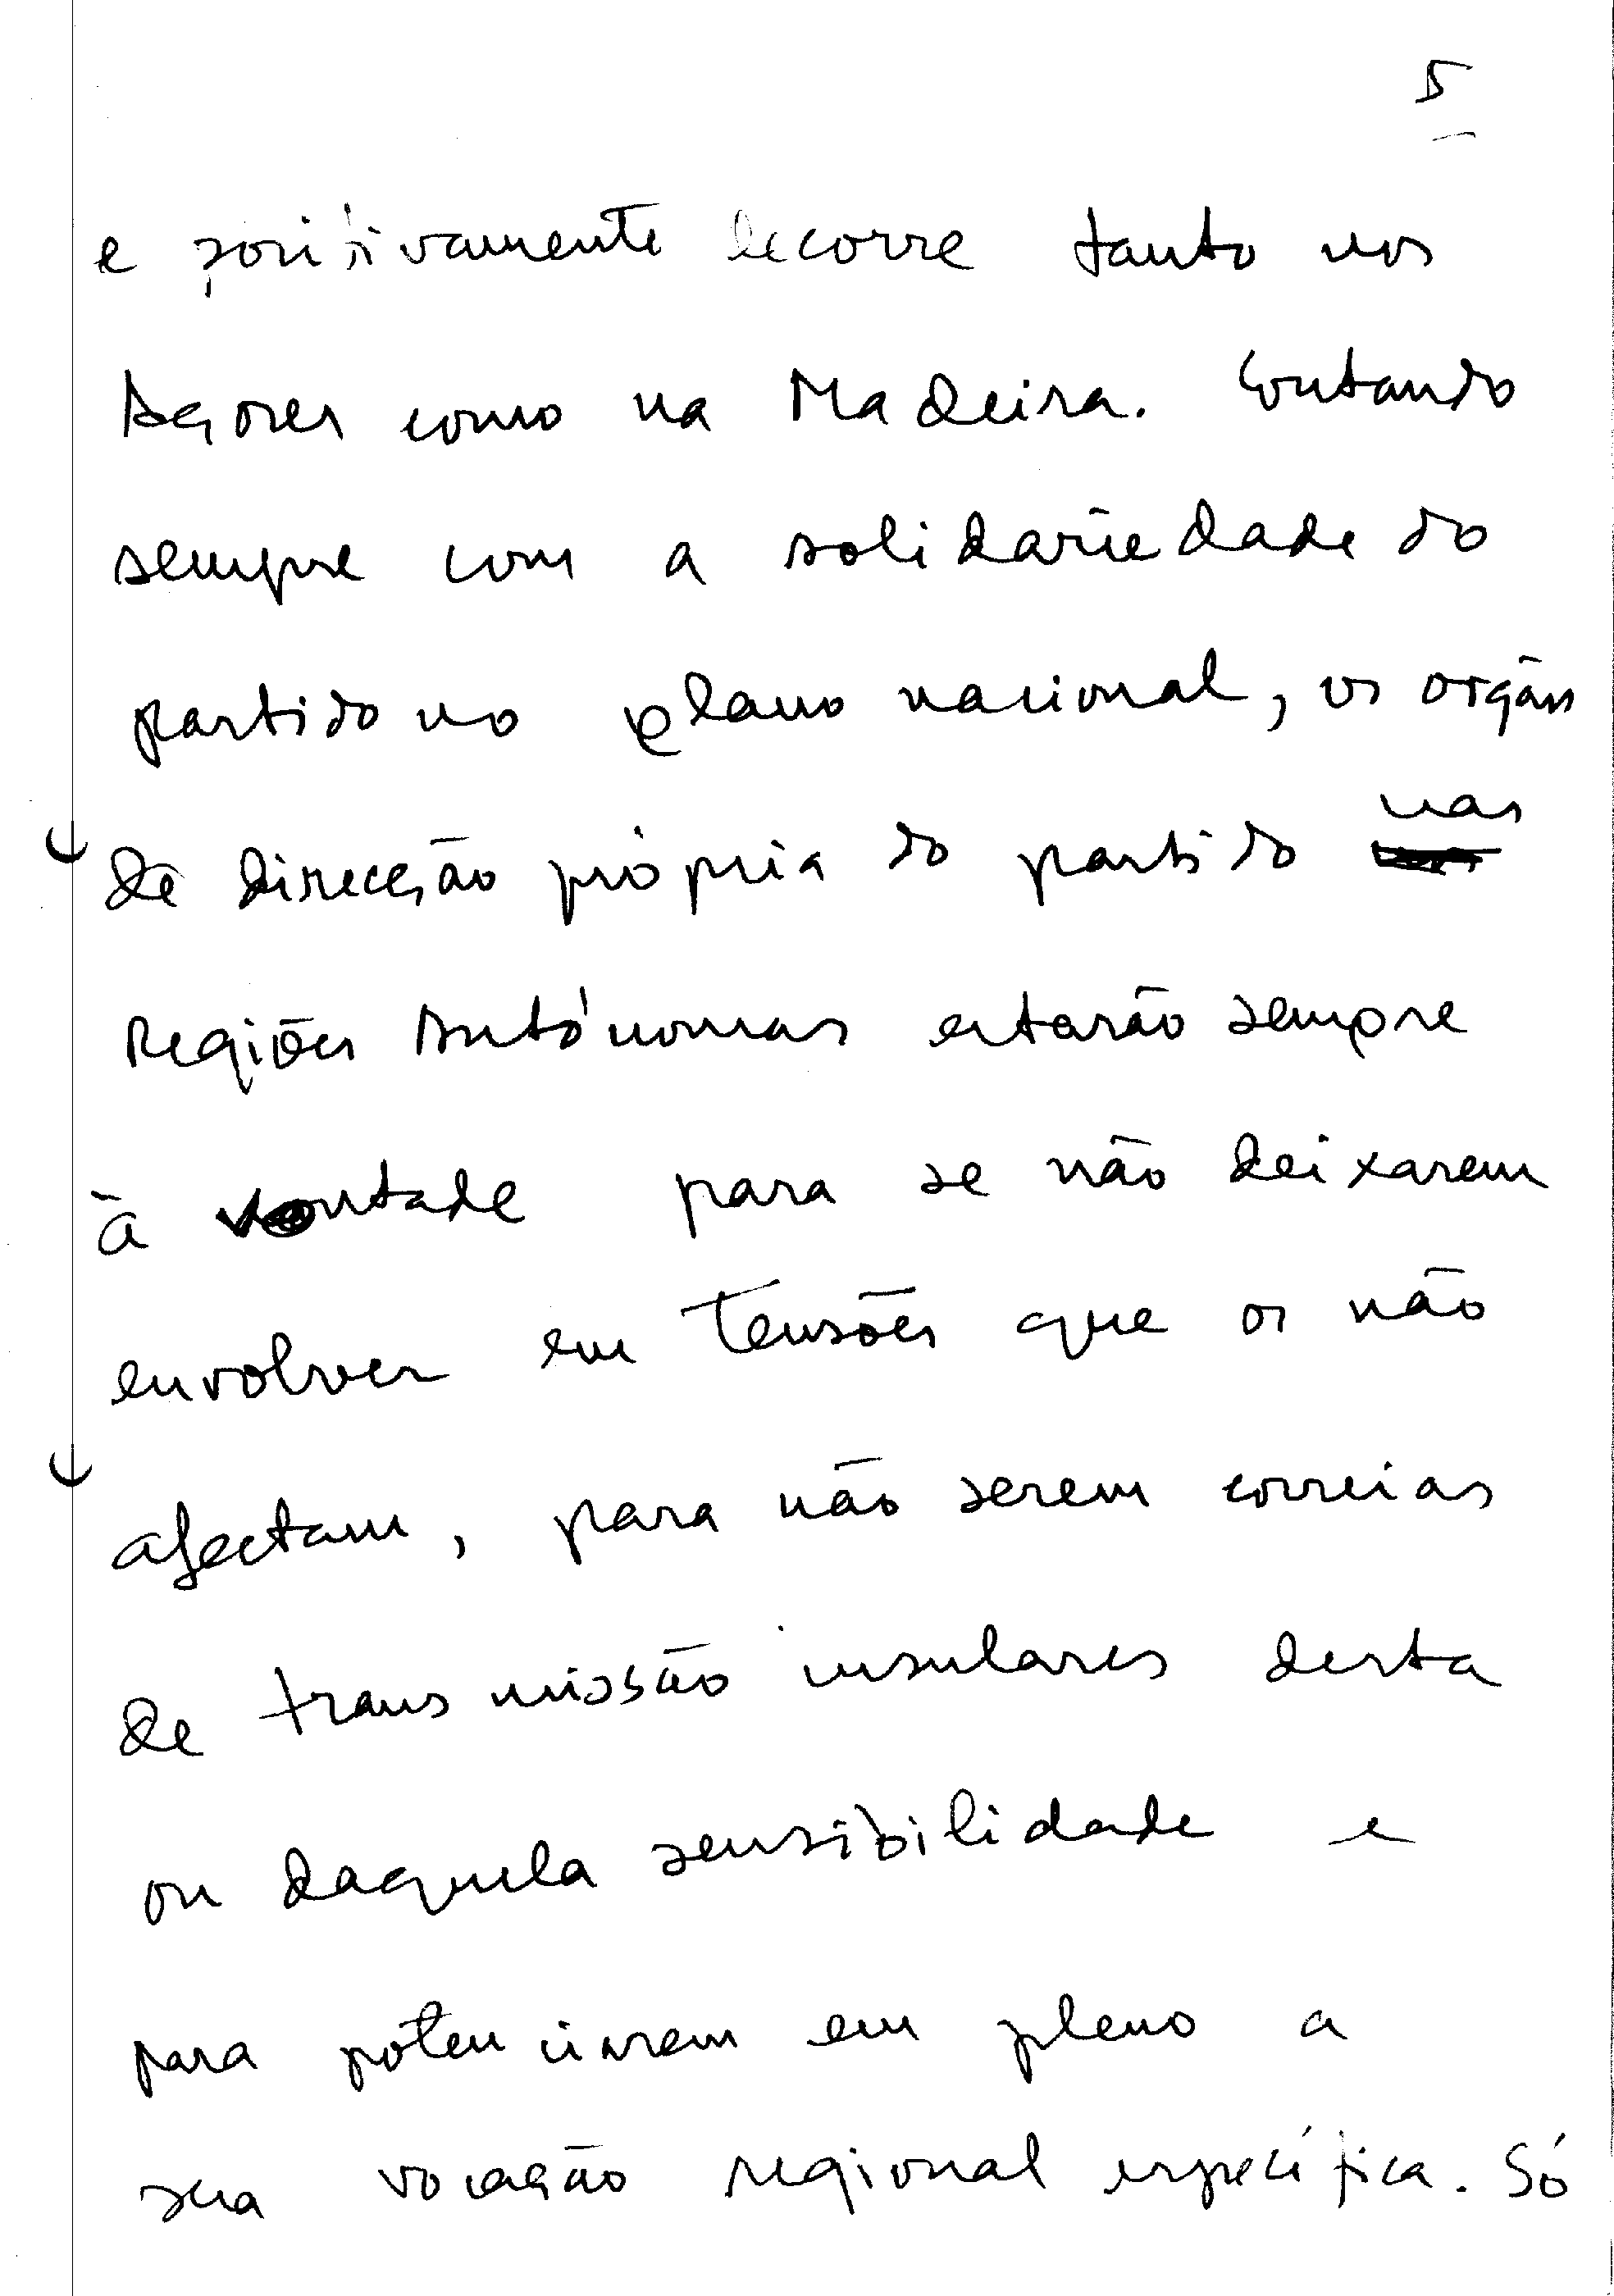 5
e positivamente decorre tanto nos
Açores como na Madeira. Contando
sempre com a solidariedade do
partido no plano nacional, os orgãos
nas
de direcção própria do partido
Regiões Autónomas estarão sempre
à vontade para se não deixarem
envolver em tensões que os não
afectam, para não serem correias
de transmissão insulares desta
ou daquela sensibilidade e
para potenciarem em pleno a
sua vocação regional específica. Só